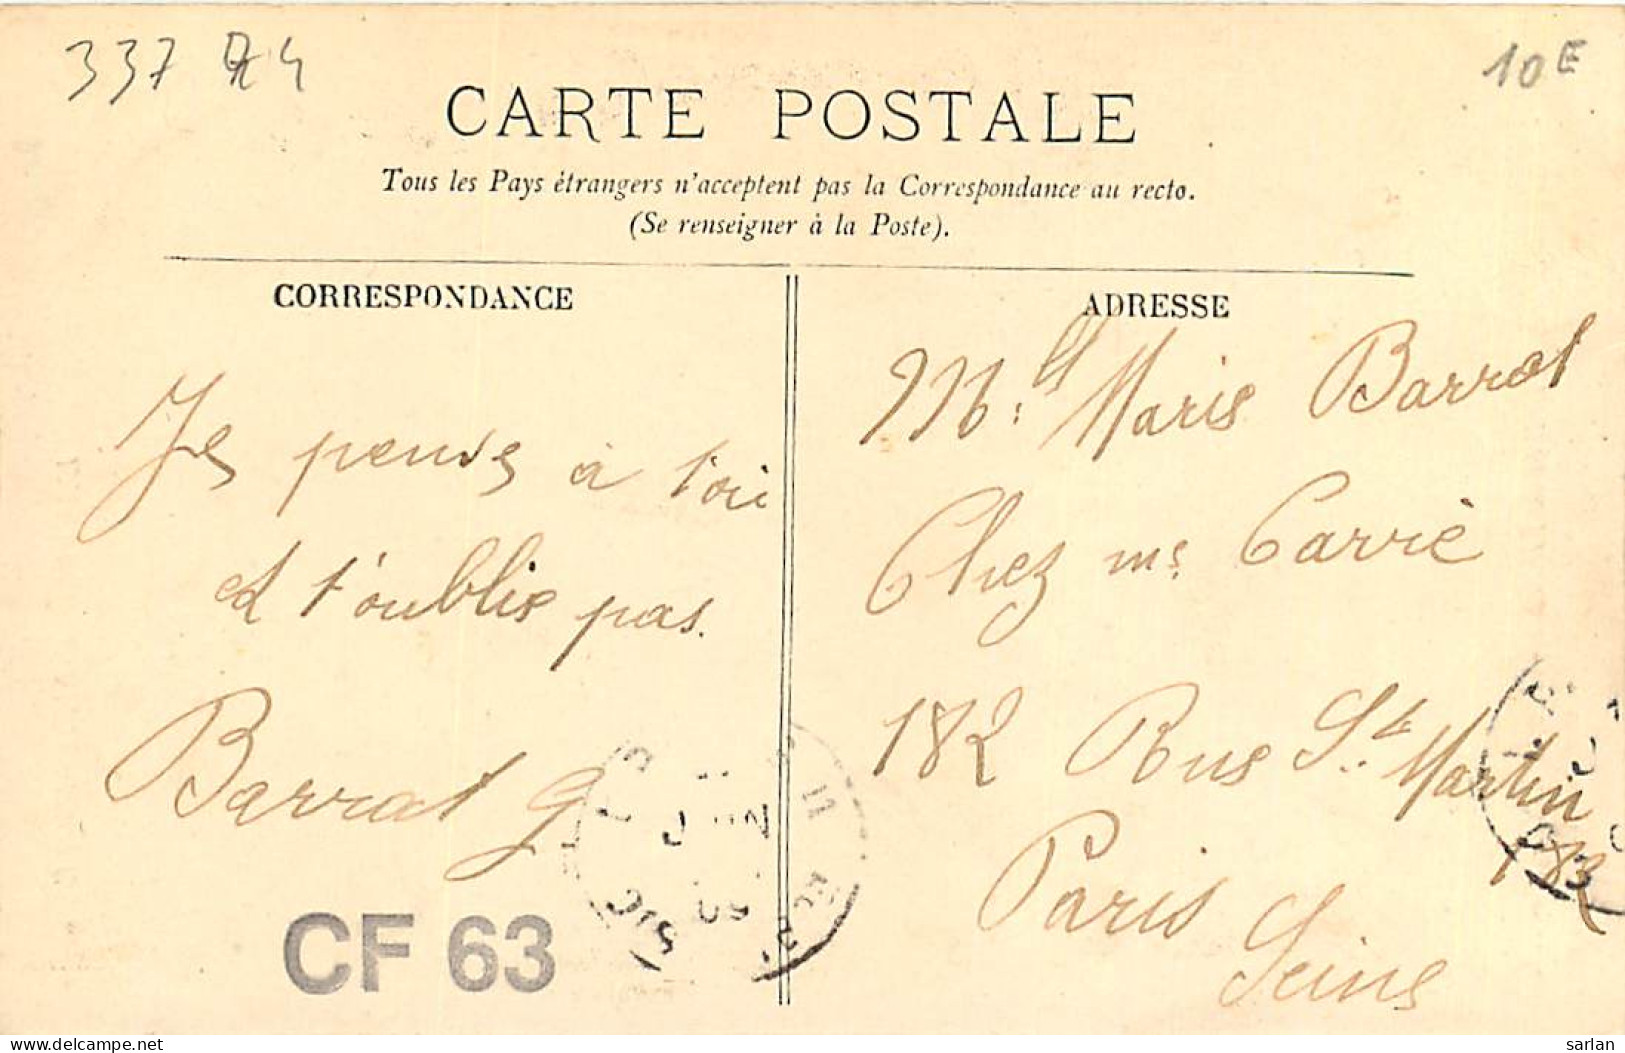 337 A4
10E
CARTE POSTALE
Tous les Pays étrangers n'acceptent pas la Correspondance au recto.
(Se renseigner à la Poste).
CORRESPONDANCE
Je pense à toi
et t'oublie pas.
Barrat G
CF 63
ADRESSE
Mlle Marie Barrat
Chez mr Carrié
182 Rue St Martin
182
Paris
Seine
JUIN
09
sarlan
delcampe.net